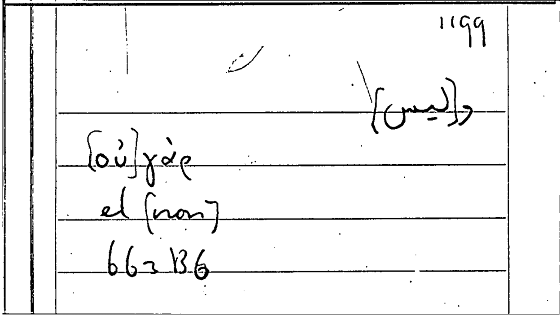 1199
و[ليس]
[οὐ] γὰρ
et [non]
663 B6